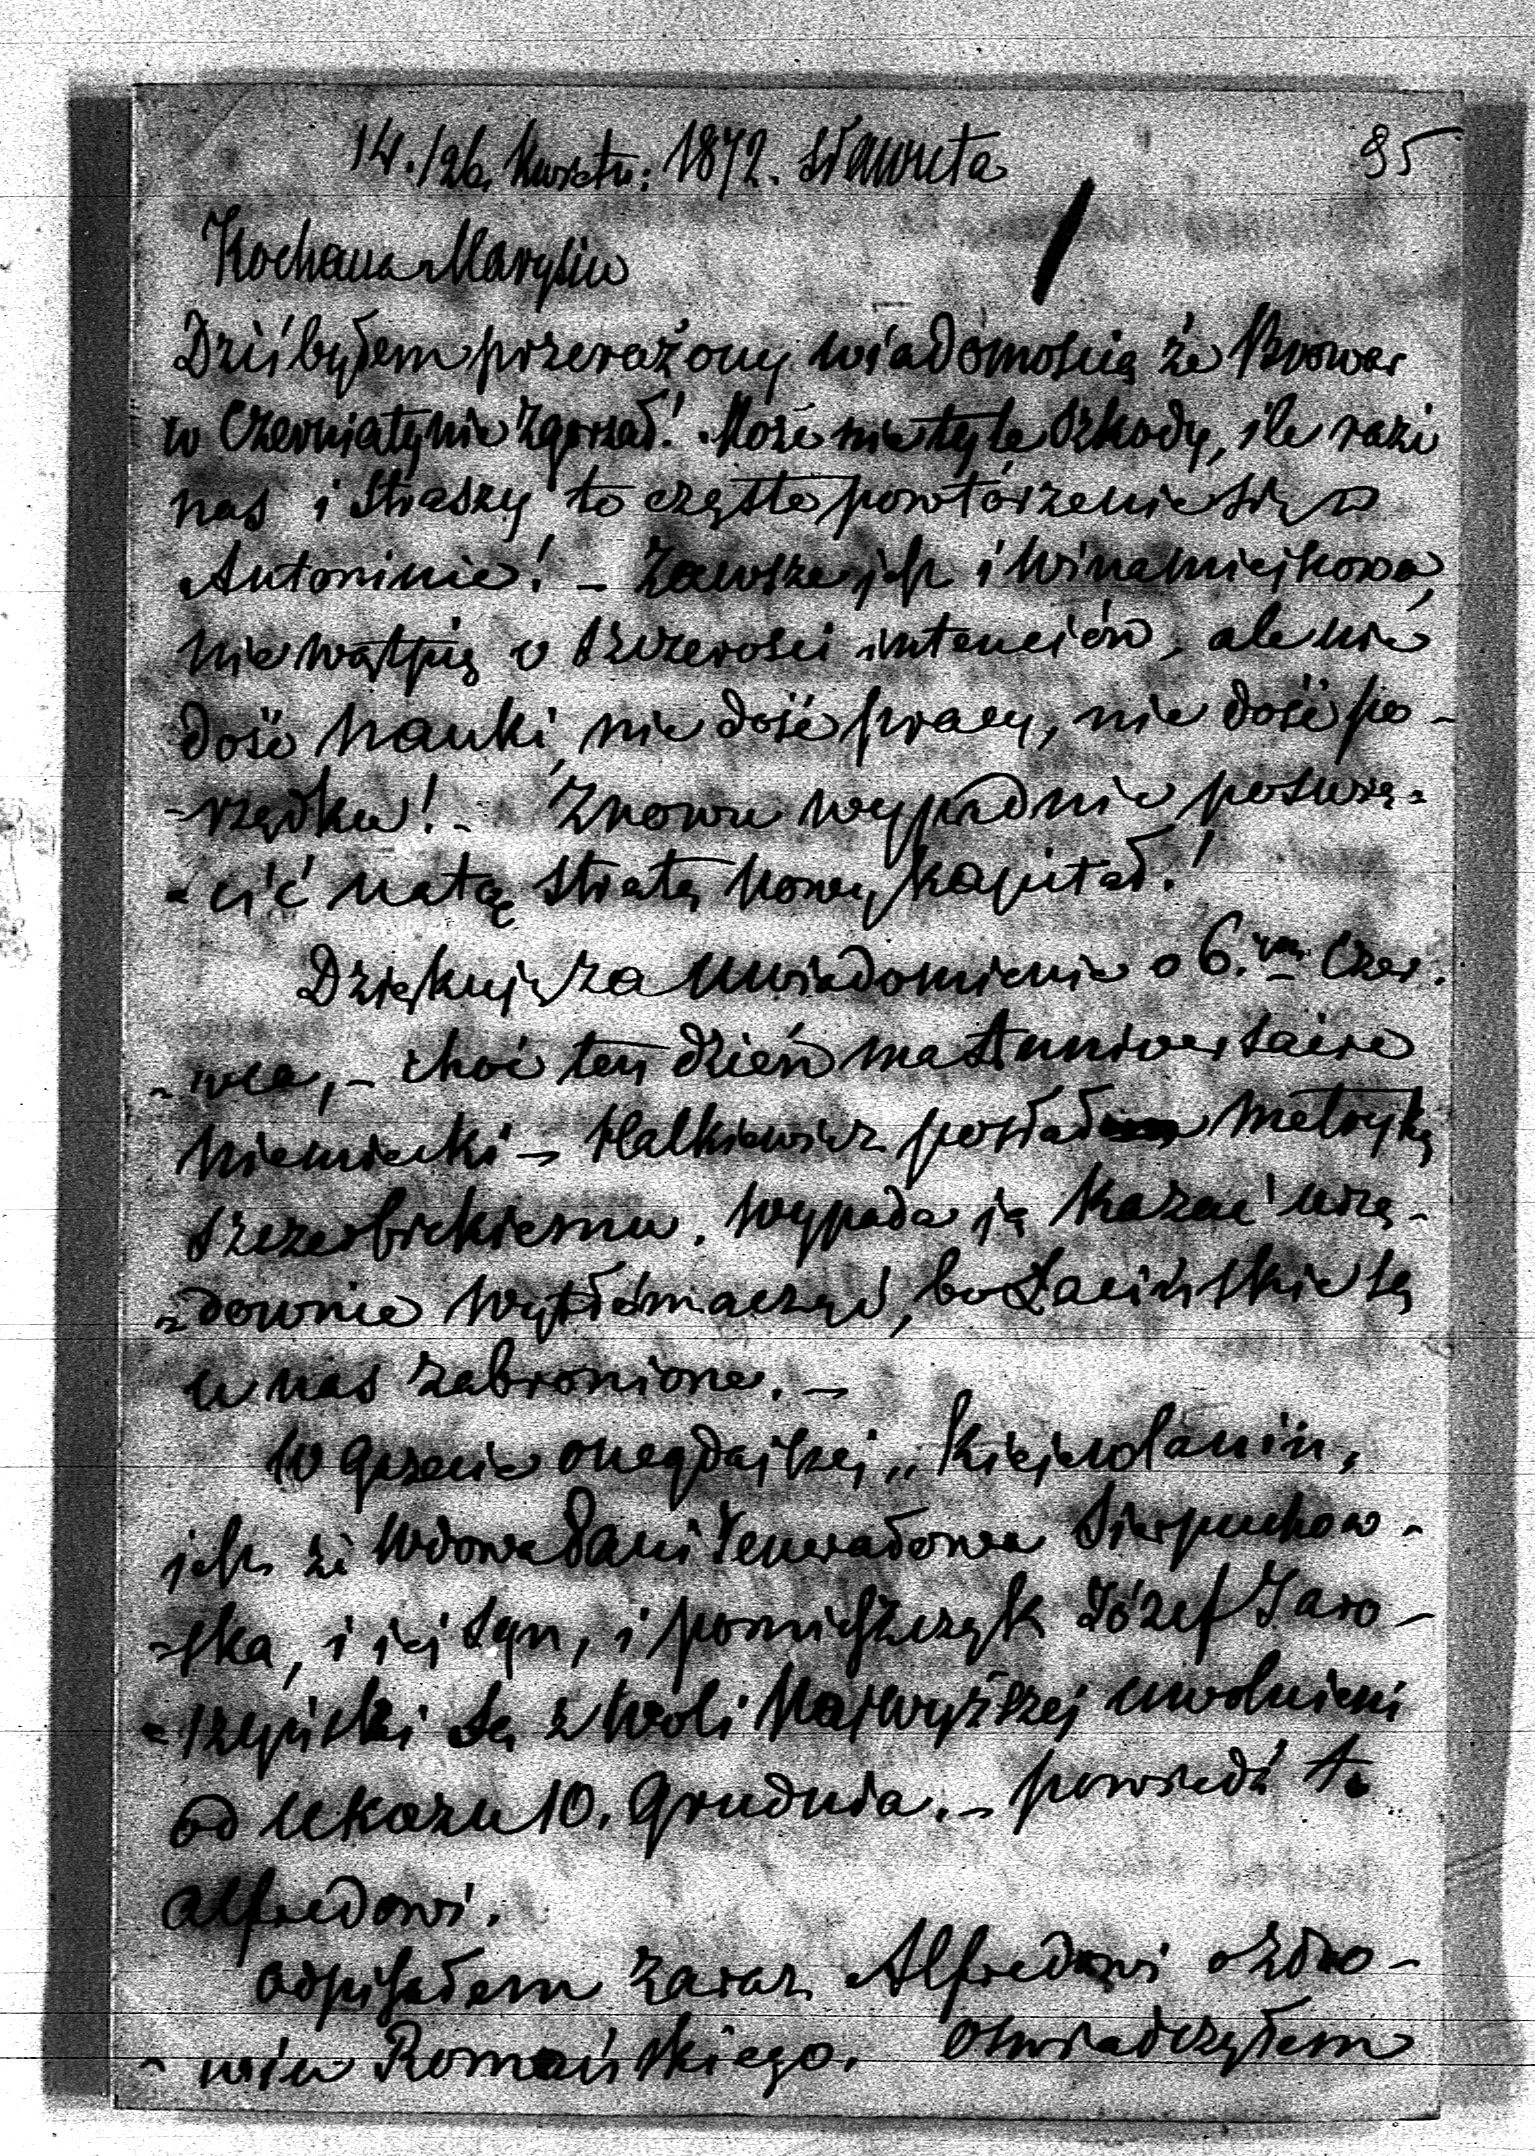 14./26. Kwietn: 1872. Sławuta
95
Kochana Marysiu
Dziś byłem przerażony wiadomością że Browar
w Czerniatynie zgorzał! Może nie tyle szkody, ile razi
nas i straszy to częste powtórzenie się w
Antoninie! – Zawsze jest i wina miejscowa,
nie wątpię o szczerości intencjów, ale nie
dość nauki, nie dość pracy, nie dość po-
-rządku! – Znowu wypadnie poświę-
-cić na tę stratę nowy kapitał!
Dziękuję za uwiadomienie o 6.ym Czer.
-wca, – choć ten dzień ma Anniversaire
niemiecki – Halkiewicz posłał metrykę
Szczerbickiemu. Wypada ją kazać urzę-
-downie wytłómaczyć, bo Łacińskie są
u nas zabronione. –
W gazecie onegdajszej „Kiejewlanin"
jest że wdowa Pani Jenerałowa Sierpuchow-
-ska, i jej syn, i pomieszczyk Józef Jaro-
-szyński są z woli Najwyższej uwolnieni
od Ukazu 10. Grudnia. – powiedz to
Alfredowi.
Odpisałem zaraz Alfredowi o zdro-
-wiu Romańskiego. Oświadczyłem